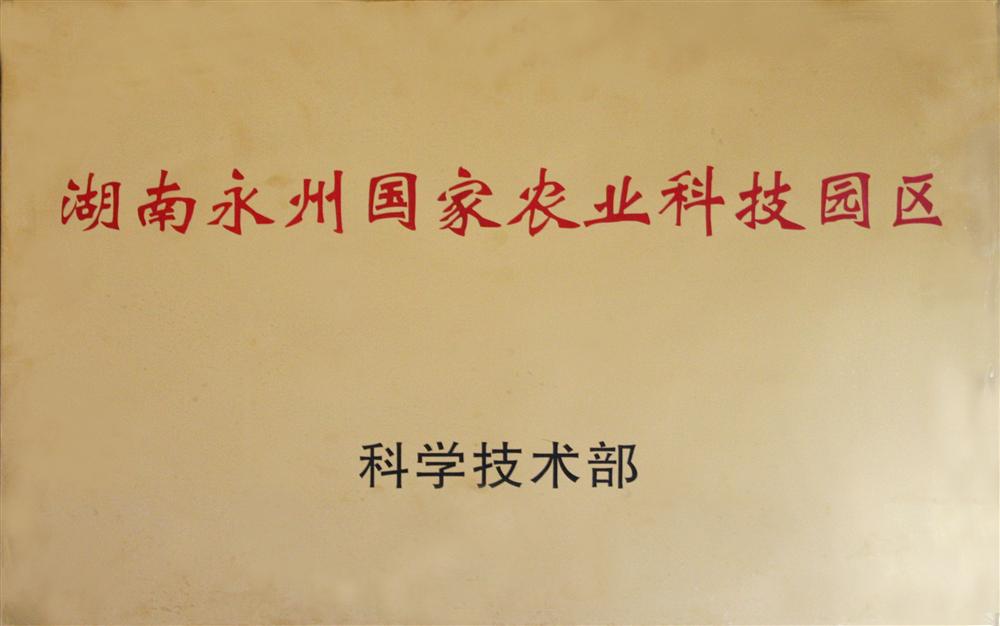 湖南永州国家农业科技园区
科学技术部